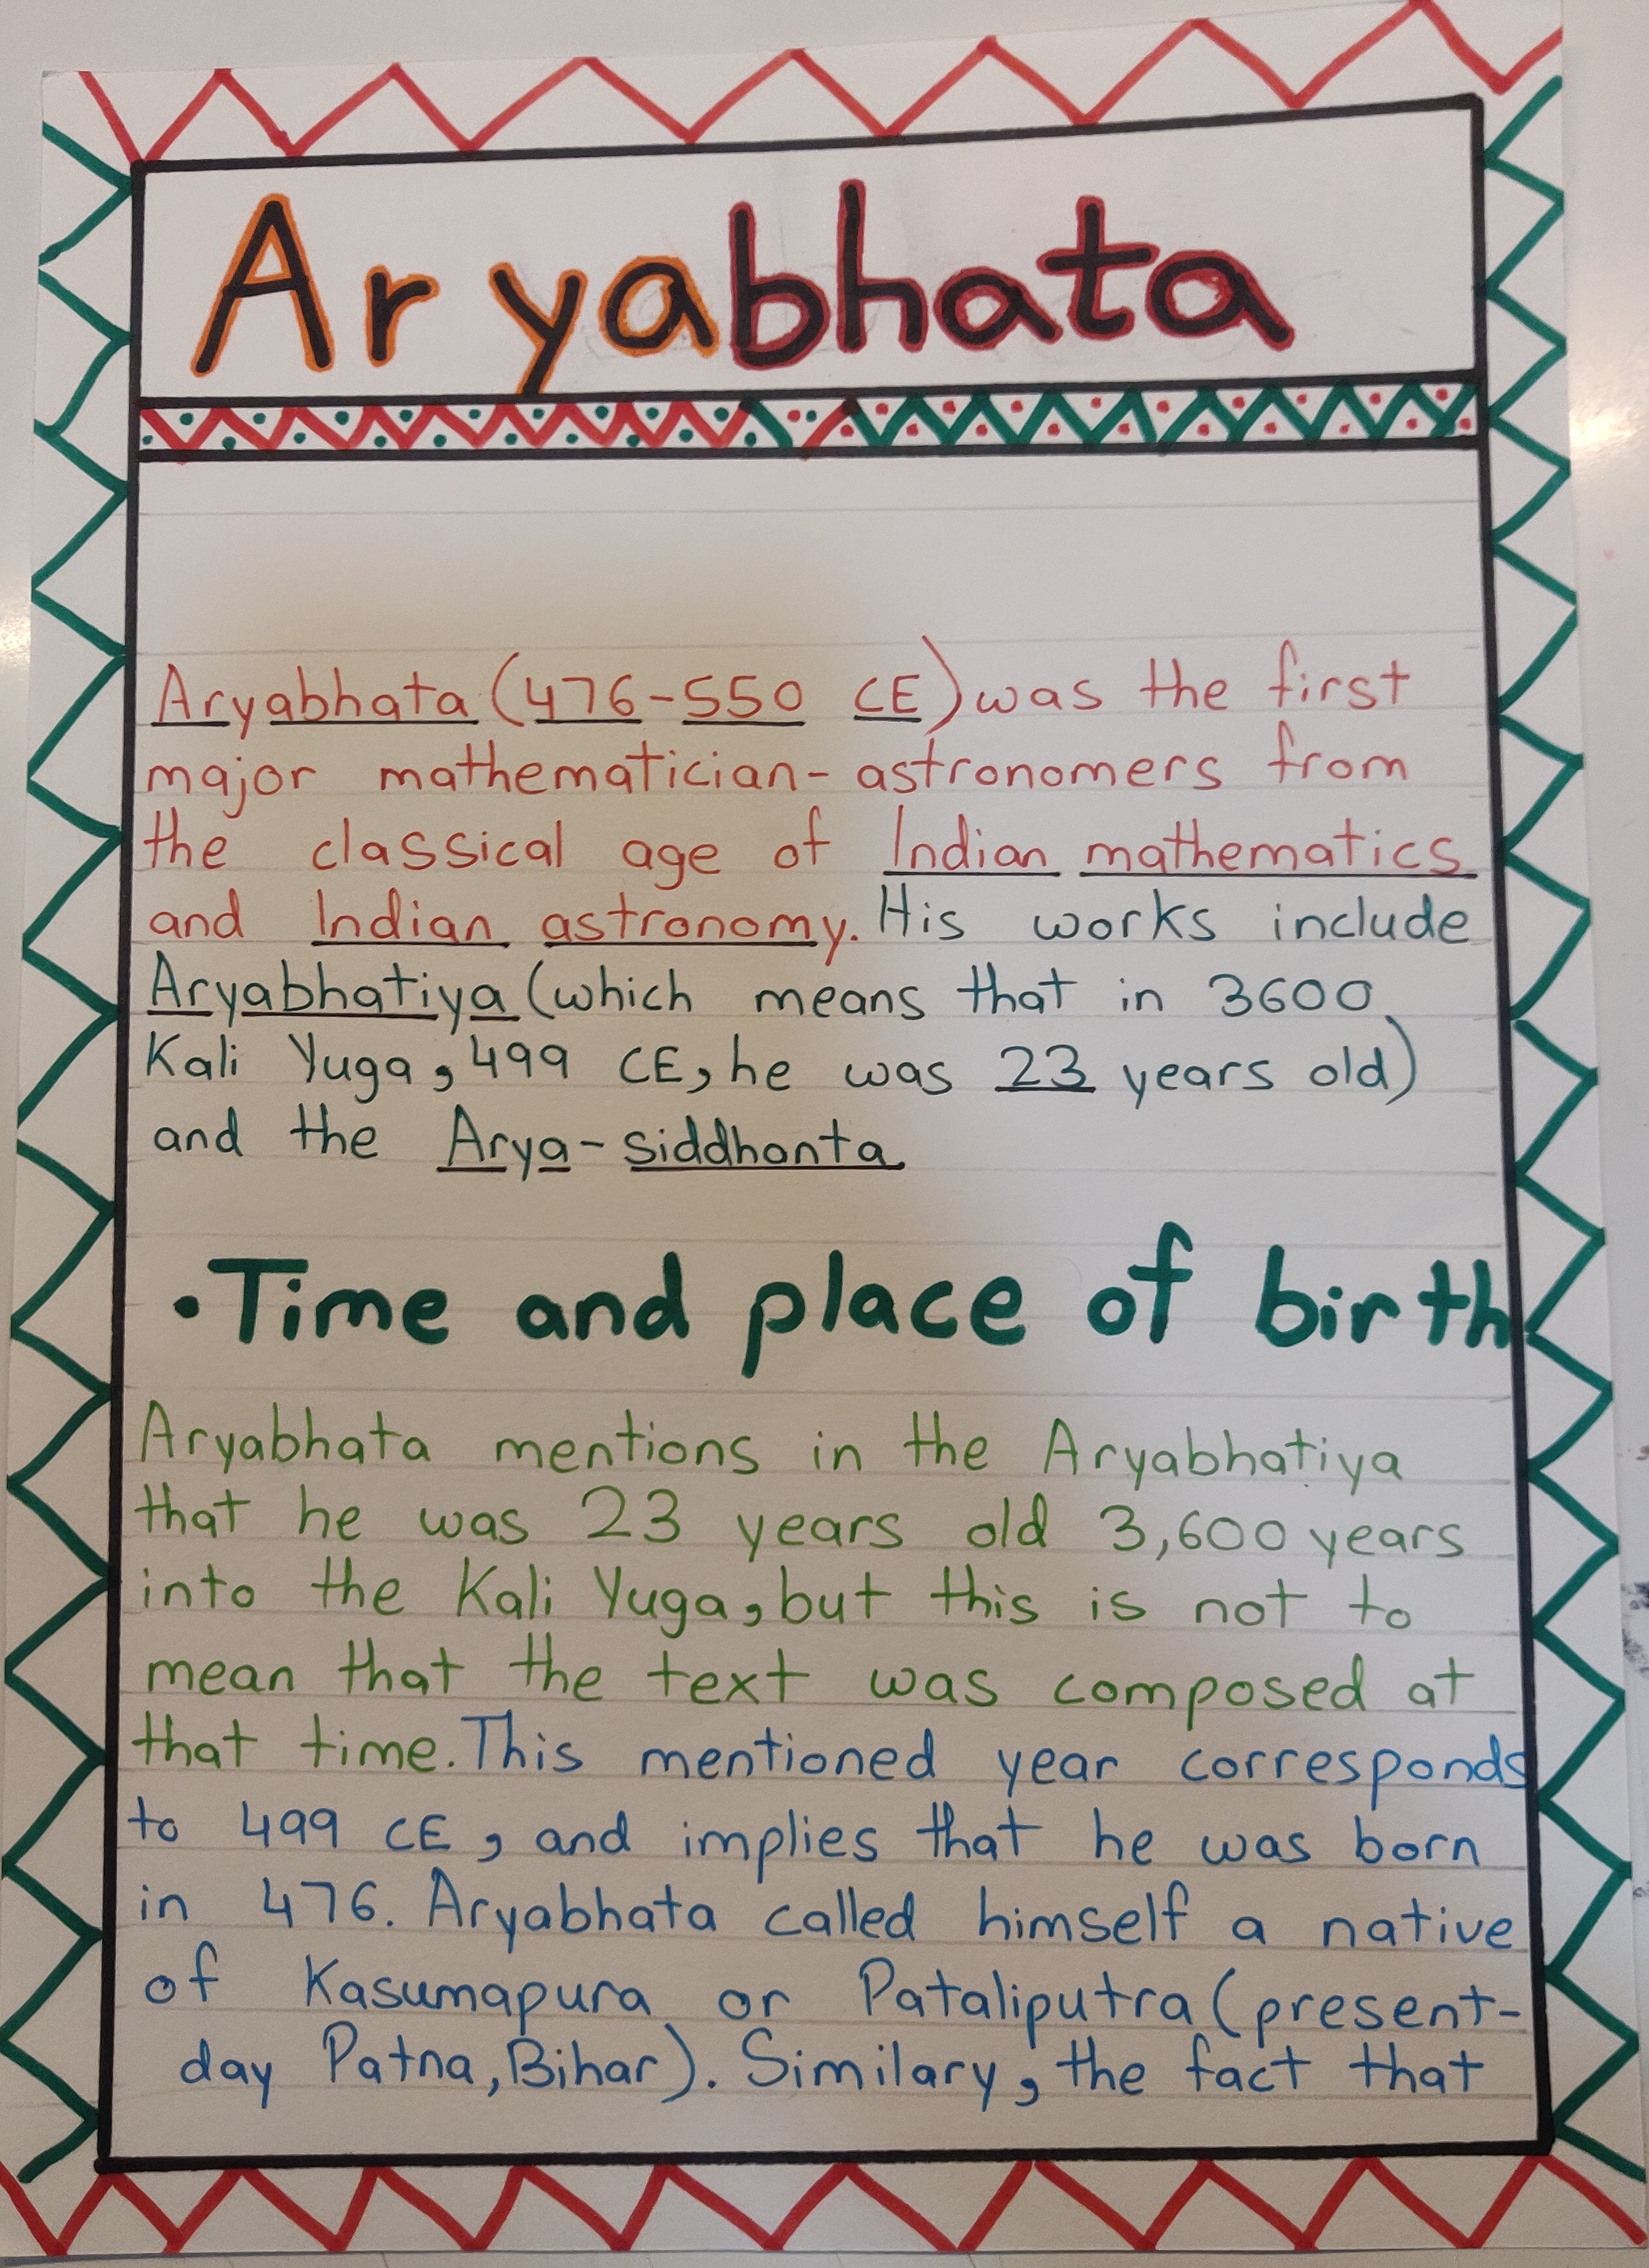 Aryabhata
Aryabhata (476-550 CE) was the first
major mathematician-astronomers from
the classical age of Indian mathematics
and Indian astronomy. His works include
Aryabhatiya (which means that in 3600
Kali Yuga, 499 CE, he was 23 years old)
and the Arya-siddhanta
•Time and place of birth
Aryabhata mentions in the Aryabhatiya
that he was 23 years old 3,600 years
into the Kali Yuga, but this is not to
mean that the text was composed at
that time. This mentioned year corresponds
to 499 CE, and implies that he was born
in 476. Aryabhata called himself a native
of Kasumapura or Pataliputra (present-
day Patna, Bihar). Similary, the fact that